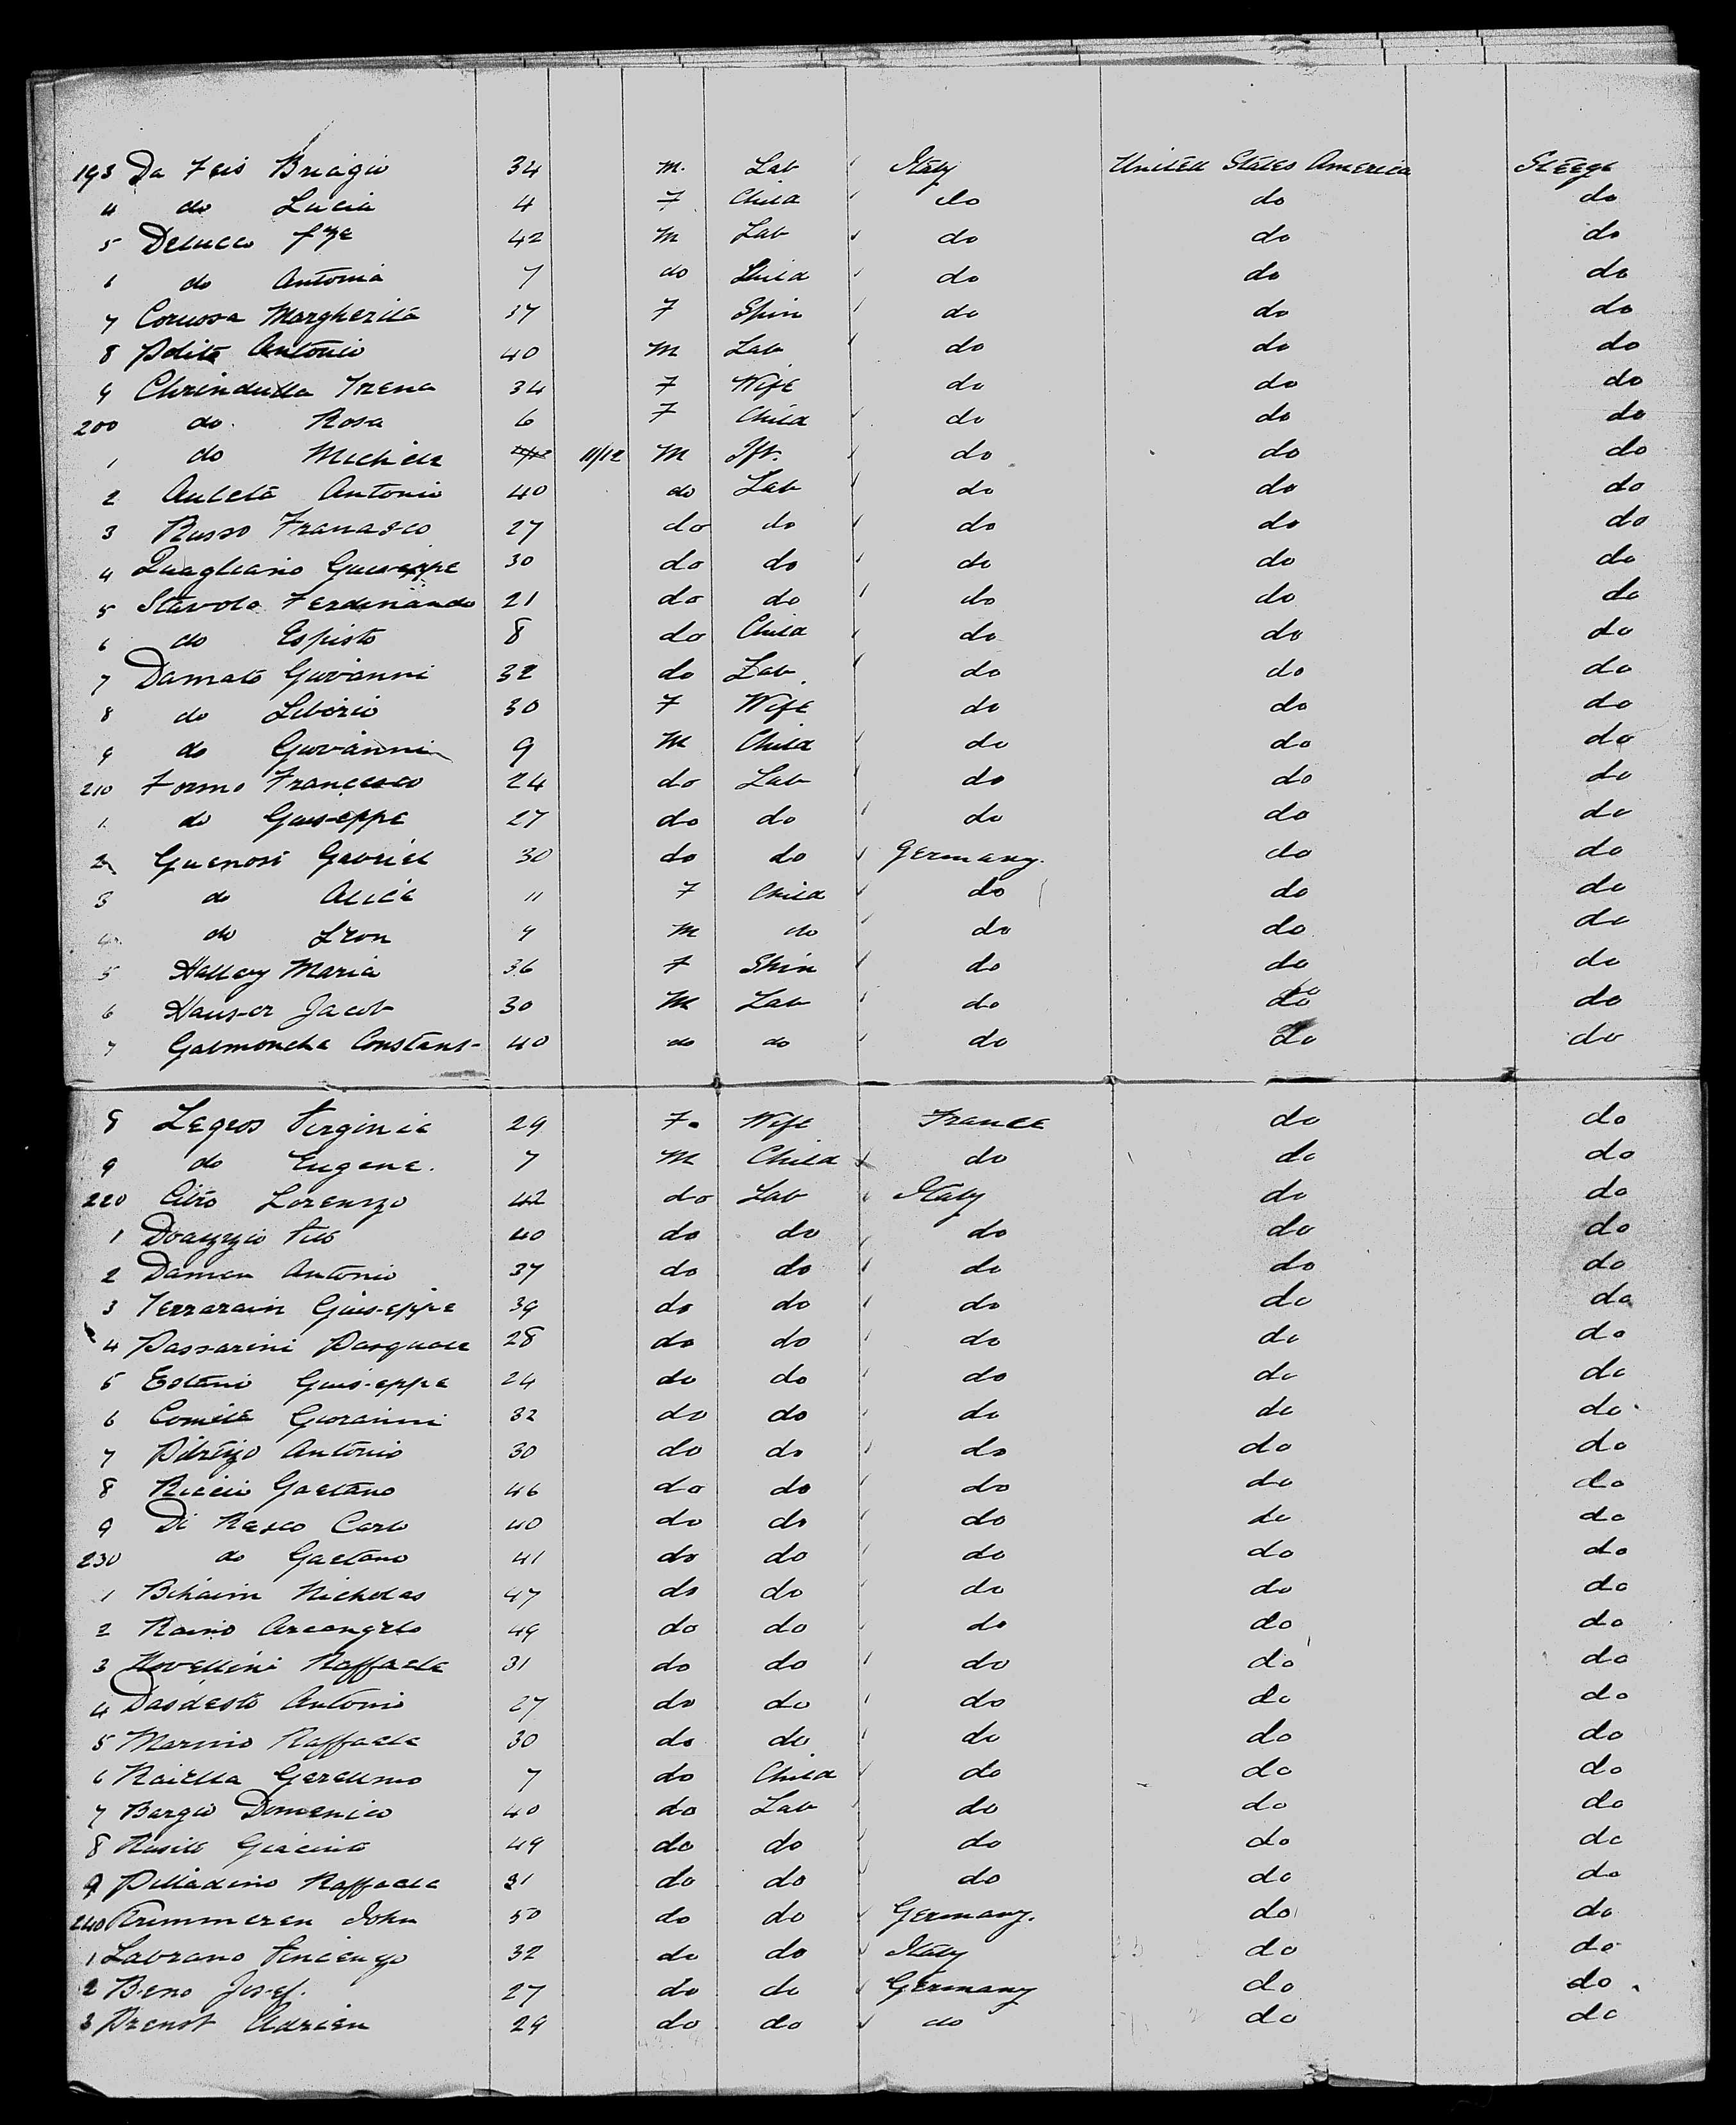 193 Da Feis Briagio 34 M. Lab Italy United States America Steege
4 do Lucia 4 F Child do do do
5 Delucco fze 42 M Lab do do do
6 do Antonia 7 do Child do do do
7 Margherita 37 F Spin do do do
8 Polito Antonio 40 M Lab do do do
9 Irena 34 F Wife do do do
200 do Rosa 6 F Child do do do
1 do Michele 11/12 M Ift. do do do
2 Auleta Antonio 40 do Lab do do do
3 Russo Francisco 27 do do do do do
4 Quagliano Guiseppe 30 do do do do do
5 Stavolo Ferdinando 21 do do do do do
6 do Espisto 8 do Child do do do
7 Damato Giovanni 32 do Lab do do do
8 do Liborio 30 F Wife do do do
9 do Giovanni 9 M Child do do do
210 Formo Francesco 24 do Lab do do do
1 do Guiseppe 27 do do do do do
2 Guenost Gabriel 30 do do Germany. do do
3 do Alice 11 F Child do do do
4 do Leon 9 M do do do do
5 Hallery Maria 36 F Spin do do do
6 Hauser Jacob 30 M Lab do do do
7 Constans- 40 do do do do do
8 Legros Virginie 29 F. Wife France do do
9 do Eugene. 7 M Child do do do
220 Citro Lorenzo 42 do Lab Italy do do
1 Vito 40 do do do do do
2 Damen Antonio 37 do do do do do
3 Guiseppe 39 do do do do do
4 Passarini Pasquale 28 do do do do do
5 Guiseppe 24 do do do do do
6 Comile Giovanni 32 do do do do do
7 Antonio 30 do do do do do
8 Riccio Gaetano 46 do do do do do
9 Di Rasco Carlo 40 do do do do do
230 do Gaetano 41 do do do do do
1 Nicholas 47 do do do do do
2 Raino Arcangelo 49 do do do do do
3 Novellini Raffaele 31 do do do do do
4 Dasdesto Antonio 27 do do do do do
5 Marino Raffaele 30 do do do do do
6 Raiella 7 do Child do do do
7 Borgio Domenico 40 do Lab do do do
8 Giacinto 49 do do do do do
9 Palladino Raffaele 31 do do do do do
240 Krimmeren John 50 do do Germany. do do
1 Labrano Vincenzo 32 do do Italy do do
2 Beno Josef. 27 do do Germany do do
3 Prenot Adrien 29 do do do do do